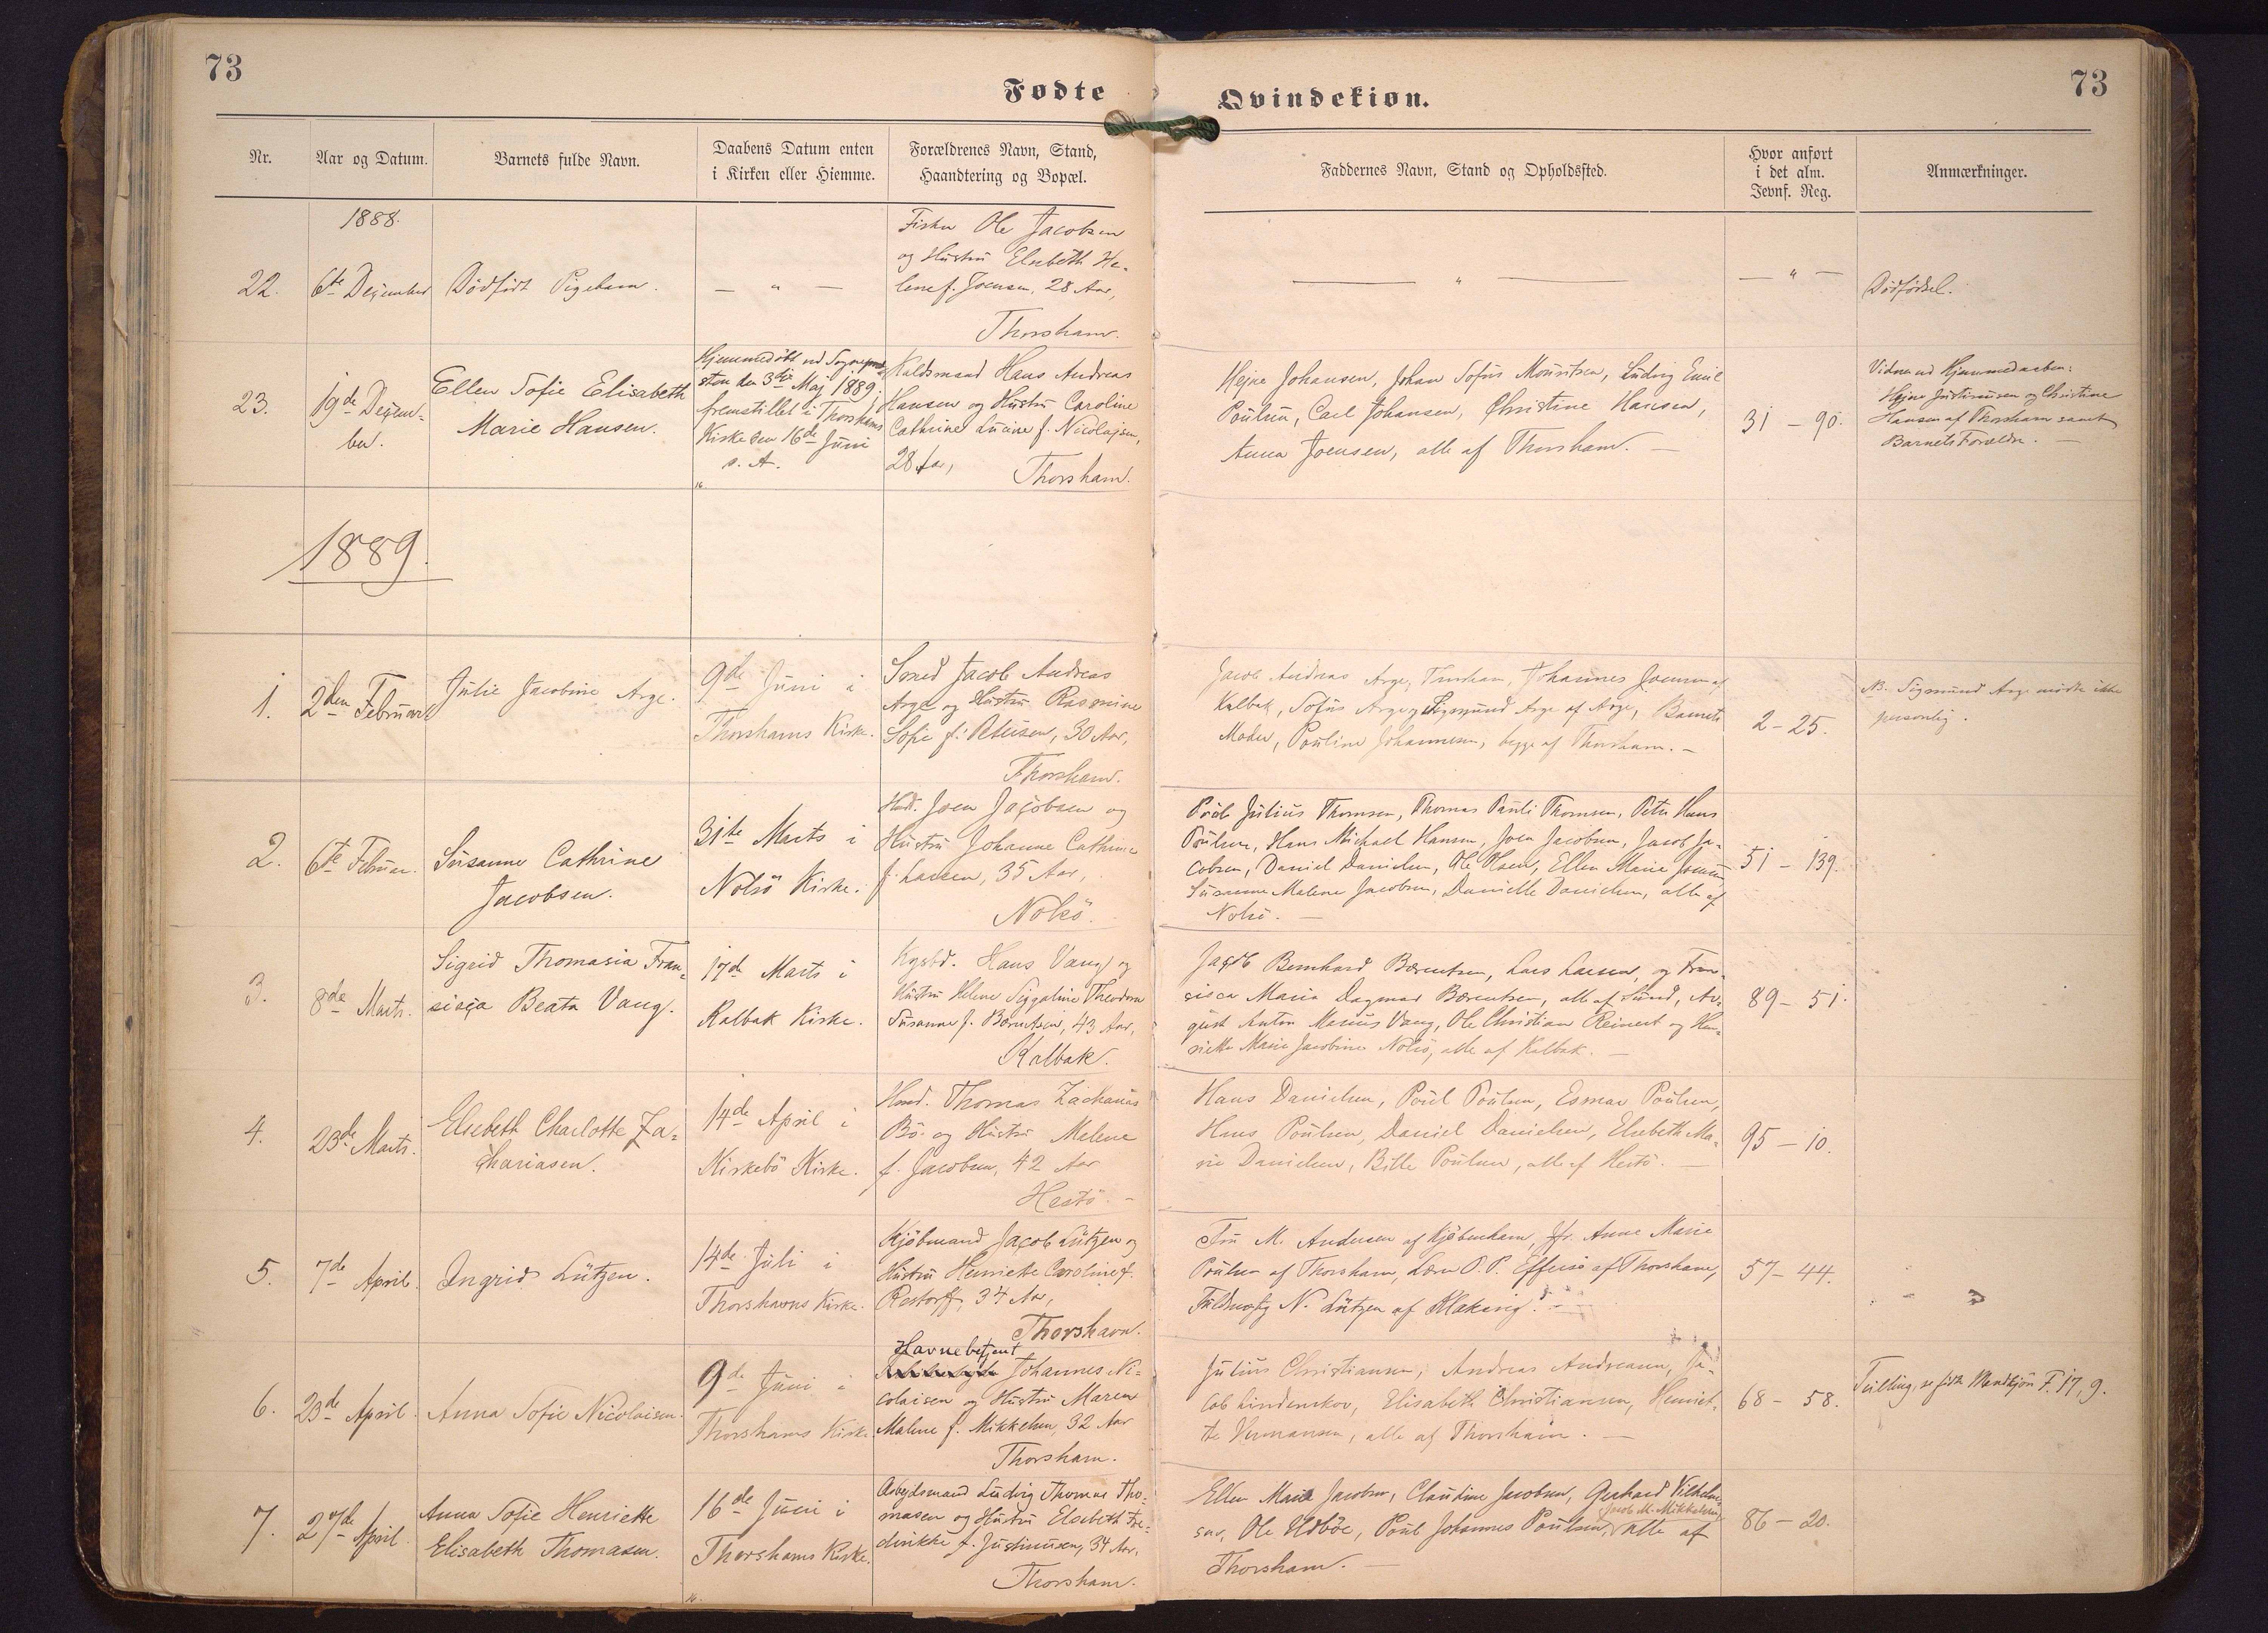 73
73
Fødte
Qvindekiøn.
Nr.
Aar og Datum.
Barnets fulde Navn.
Daabens Datum enten
i Kirken eller Hiemme.
Forældrenes Navn, Stand,
Haandtering og Bopæl.
Faddernes Navn, Stand og Opholdssted.
Hvor anført
i det alm.
Jevnf. Reg.
Anmærkninger.
1888.
22.
6te Dezember
Dødfødt Pigebarn.
— " —
Fisker Ole Jacobsen
og Hustru Elsebeth He-
lene f. Joensen, 28 Aar,
Thorshavn.
— " —
— " —
Dødfødsel.
23.
19de Dezem-
ber.
Ellen Sofie Elisabeth
Marie Hansen.
Hjemmedøbt ved Sognepræ-
sten den 3die Maj 1889,
fremstillet i Thorshavns
Kirke den 16de Juni
s. A.
Hans Andreas
Hansen og Hustru Caroline
Cathrine Lucine f. Nicolajsen,
28 Aar,
Thorshavn.
Hejne Johansen, Johan Sofus Mouritsen, Ludvig Emil
Poulsen, Carl Johansen, Christine Hansen,
Anna Joensen, alle af Thorshavn. —
31 — 90.
Vidner ved Hjemmedaaben:
Hejne Justinussen og Christine
Hansen af Thorshavn samt
Barnets Forældre. —
1889.
1.
2den Februar
Julie Jacobine Arge.
9de Juni i
Thorshavns Kirke.
Smed Jacob Andreas
Arge og Hustru Rasmine
Sofie f. Petersen, 30 Aar,
Thorshavn.
Jacob Andreas Arge, Thorshavn, Johannes Joensen af
Kalbak, Sofus Arge og Sigmund Arge af Arge, Barnets
Moder, Pouline Johannesen, begge af Thorshavn. —
2 — 25.
NB. Sigmund Arge mødte ikke
personlig.
2.
6te Februar.
Susanne Cathrine
Jacobsen.
31te Marts i
Nolsö Kirke.
Hmd. Joen Jacobsen og
Hustru Johanne Cathrine
f. Larsen, 35 Aar,
Nolsö.
Poul Julius Thomsen, Thomas Pauli Thomsen, Peter Hans
Poulsen, Hans Michael Hansen, Joen Jacobsen, Jacob Ja-
cobsen, Daniel Danielsen, Ole Olsen, Ellen Marie Joensen,
Susanne Malene Jacobsen, Danielle Danielsen, alle af
Nolsö. —
51 — 139.
3.
8de Marts.
Sigrid Thomasia Fran-
sisca Beata Vang.
17de Marts i
Kalbak Kirke.
Kgsbd. Hans Vang og
Hustru Helene Siggaline Theodora
Susanne f. Bærentsen, 43 Aar,
Kalbak.
Jacob Bernhard Bærentsen, Lars Larsen, og Fran-
sisca Maria Dagmar Bærentsen, alle af Sund, Au-
gust Anton Marius Vang, Ole Christian Reinert og Hen-
riette Marie Jacobine Nolsö, alle af Kalbak. —
89 — 51.
4.
23de Marts.
Elsebeth Charlotte Za-
chariasen.
14de April i
Kirkebö Kirke.
Hmd. Thomas Zacharias
Bö og Hustru Malene
f. Jacobsen, 42 Aar
Hestö. —
Hans Danielsen, Poul Poulsen, Esmar Poulsen,
Hans Poulsen, Daniel Danielsen, Elsebeth Ma-
rie Danielsen, Bille Poulsen, alle af Hestö. —
95 — 10.
5.
7de April.
Ingrid Lützen.
14de Juli i
Thorshavns Kirke.
Kjöbmand Jacob Lützen og
Hustru Henriette Caroline f.
Restorff, 34 Aar,
Thorshavn.
Fru M. Andersen af Kjöbenhavn, Jfr. Anne Marie
Poulsen af Thorshavn, Lærer P. P. Effersö af Thorshavn,
Fuldmægtig N. Lützen af Klaksvig. —
57 — 44.
6.
23de April.
Anna Sofie Nicolaisen
9de Juni i
Thorshavns Kirke.
Havnebetjent
Johannes Ni-
colaisen og Hustru Maren
Malene f. Mikkelsen, 32 Aar
Thorshavn.
Julius Christiansen, Andreas Andreasen, Ja-
cob Lindenskov, Elisabeth Christiansen, Henriet-
te Hermansen, alle af Thorshavn. —
68 — 58.
Tvilling, se fødte Mandkjön F. 17, 9.
7.
27de April.
Anna Sofie Henriette
Elisabeth Thomasen.
16de Juni i
Thorshavns Kirke.
Arbejdsmand Ludvig Thomas Tho-
masen og Hustru Elsebeth Fre-
derikke f. Justinussen, 34 Aar,
Thorshavn.
Ellen Marie Jacobsen, Claudine Jacobsen, Gerhard Vilhelm-
sen, Ole Udböe, Poul Johannes Poulsen, Jacob M. Mikkelsen, alle af
Thorshavn. —
86 — 20.